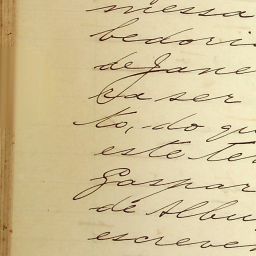 messa
bedoris
de Jane
ca ser
to, do qu
este te
Gaspar
de Albu
escreve